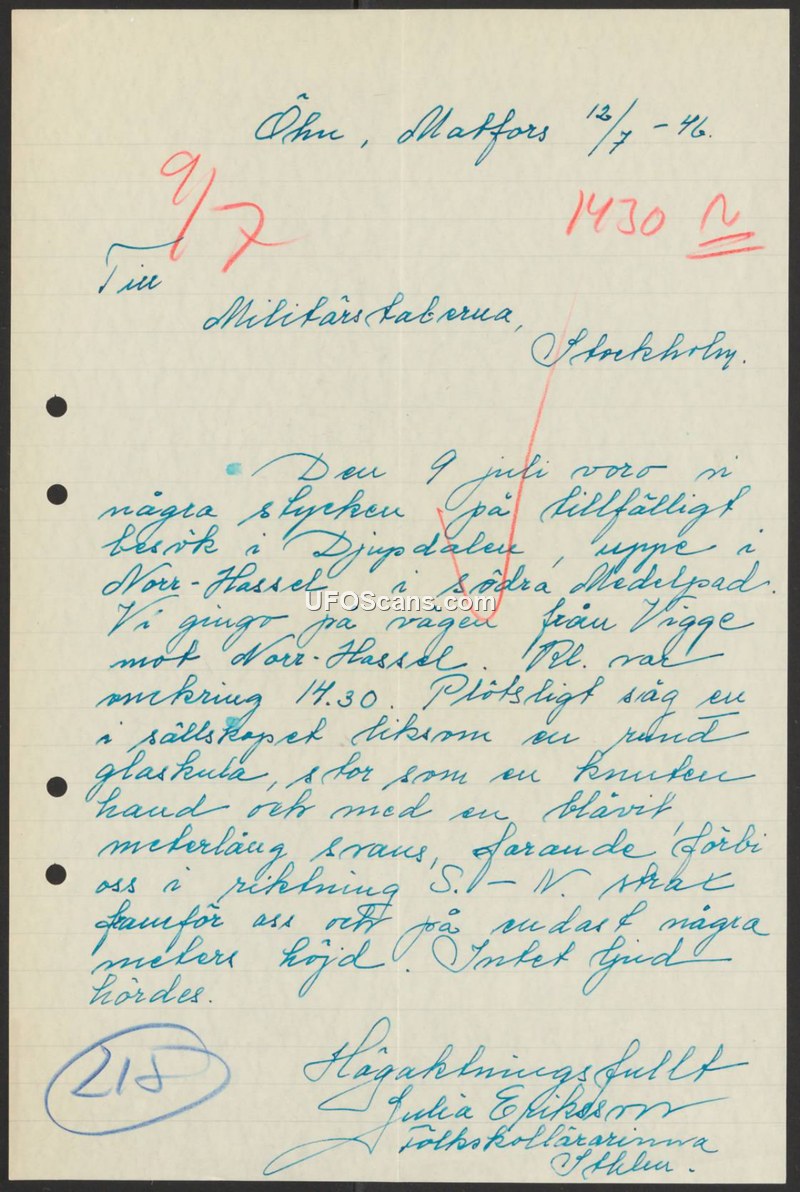 Öhn, Matfors 12/7 - 46.
9/7
1430 N
Till
Militärstaberna,
Stockholm.
Den 9 juli voro vi
några stycken på tillfälligt
besök i Djupdalen, uppe i
Norr-Hassel, i södra Medelpad.
UFOScans.com
Vi gingo på vägen från Vigge
mot Norr-Hassel. Kl. var
omkring 14.30. Plötsligt såg en
i sällskapet liksom en rund
glaskula, stor som en knuten
hand och med en blåvit,
meterlång svans, farande förbi
oss i riktning S. - N. strax
framför oss och på endast några
meters höjd. Intet ljud
hördes.
218
Högaktningsfullt
Julia Eriksson
Folkskollärarinna
Sthlm.